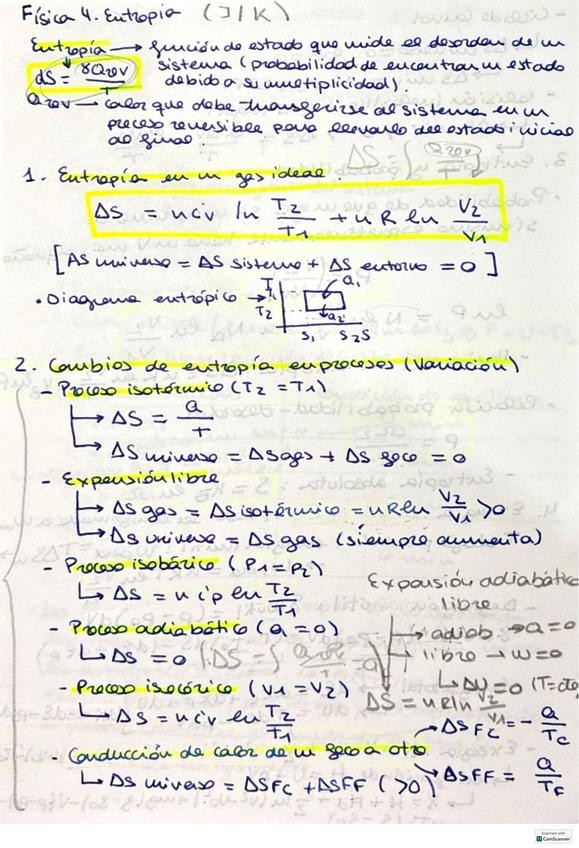 Física 4. Entropía (J/K)
Entropía → función de estado que mide el desorden de un
sistema (probabilidad de encontrar un estado
debido a su multiplicidad).
dS = δQrev / T
Qrev — calor que debe transferirse al sistema en un
proceso reversible para llevarlo del estado inicial
al final.
1. Entropía en un gas ideal
ΔS = n cv ln T2/T1 + n R ln V2/V1
[ΔS universo = ΔS sistema + ΔS entorno = 0]
• Diagrama entrópico →
T
T2
Q1
Q2
S1 S2 S
2. Cambios de entropía en procesos (Variación)
- Proceso isotérmico (T2 = T1)
→ ΔS = Q/T
→ ΔS universo = ΔS gas + ΔS foco = 0
- Expansión libre
→ ΔS gas = ΔS isotérmico = n R ln V2/V1 > 0
→ ΔS universo = ΔS gas (siempre aumenta)
- Proceso isobárico (P1 = P2)
→ ΔS = n cp ln T2/T1
- Proceso adiabático (Q = 0)
→ ΔS = 0
Expansión adiabática
libre
→ adiab → Q = 0
→ libre → W = 0
→ ΔU = 0 (T = cte)
ΔS = n R ln V2/V1
- Proceso isocórico (V1 = V2)
→ ΔS = n cv ln T2/T1
- Conducción de calor de un foco a otro
→ ΔS FC = - Q/TC
→ ΔS FF = Q/TF
→ ΔS universo = ΔS FC + ΔS FF (>0)
Scanned with
CamScanner